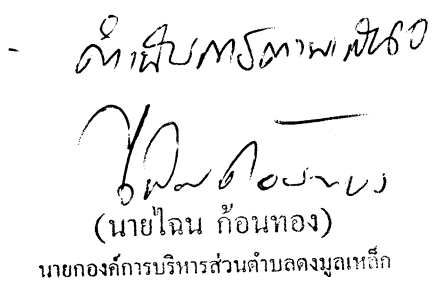 - ดำเนินการตามเสนอ
ไฉน ก้อนทอง
(นายไฉน ก้อนทอง)
นายกองค์การบริหารส่วนตำบลดงมูลเหล็ก